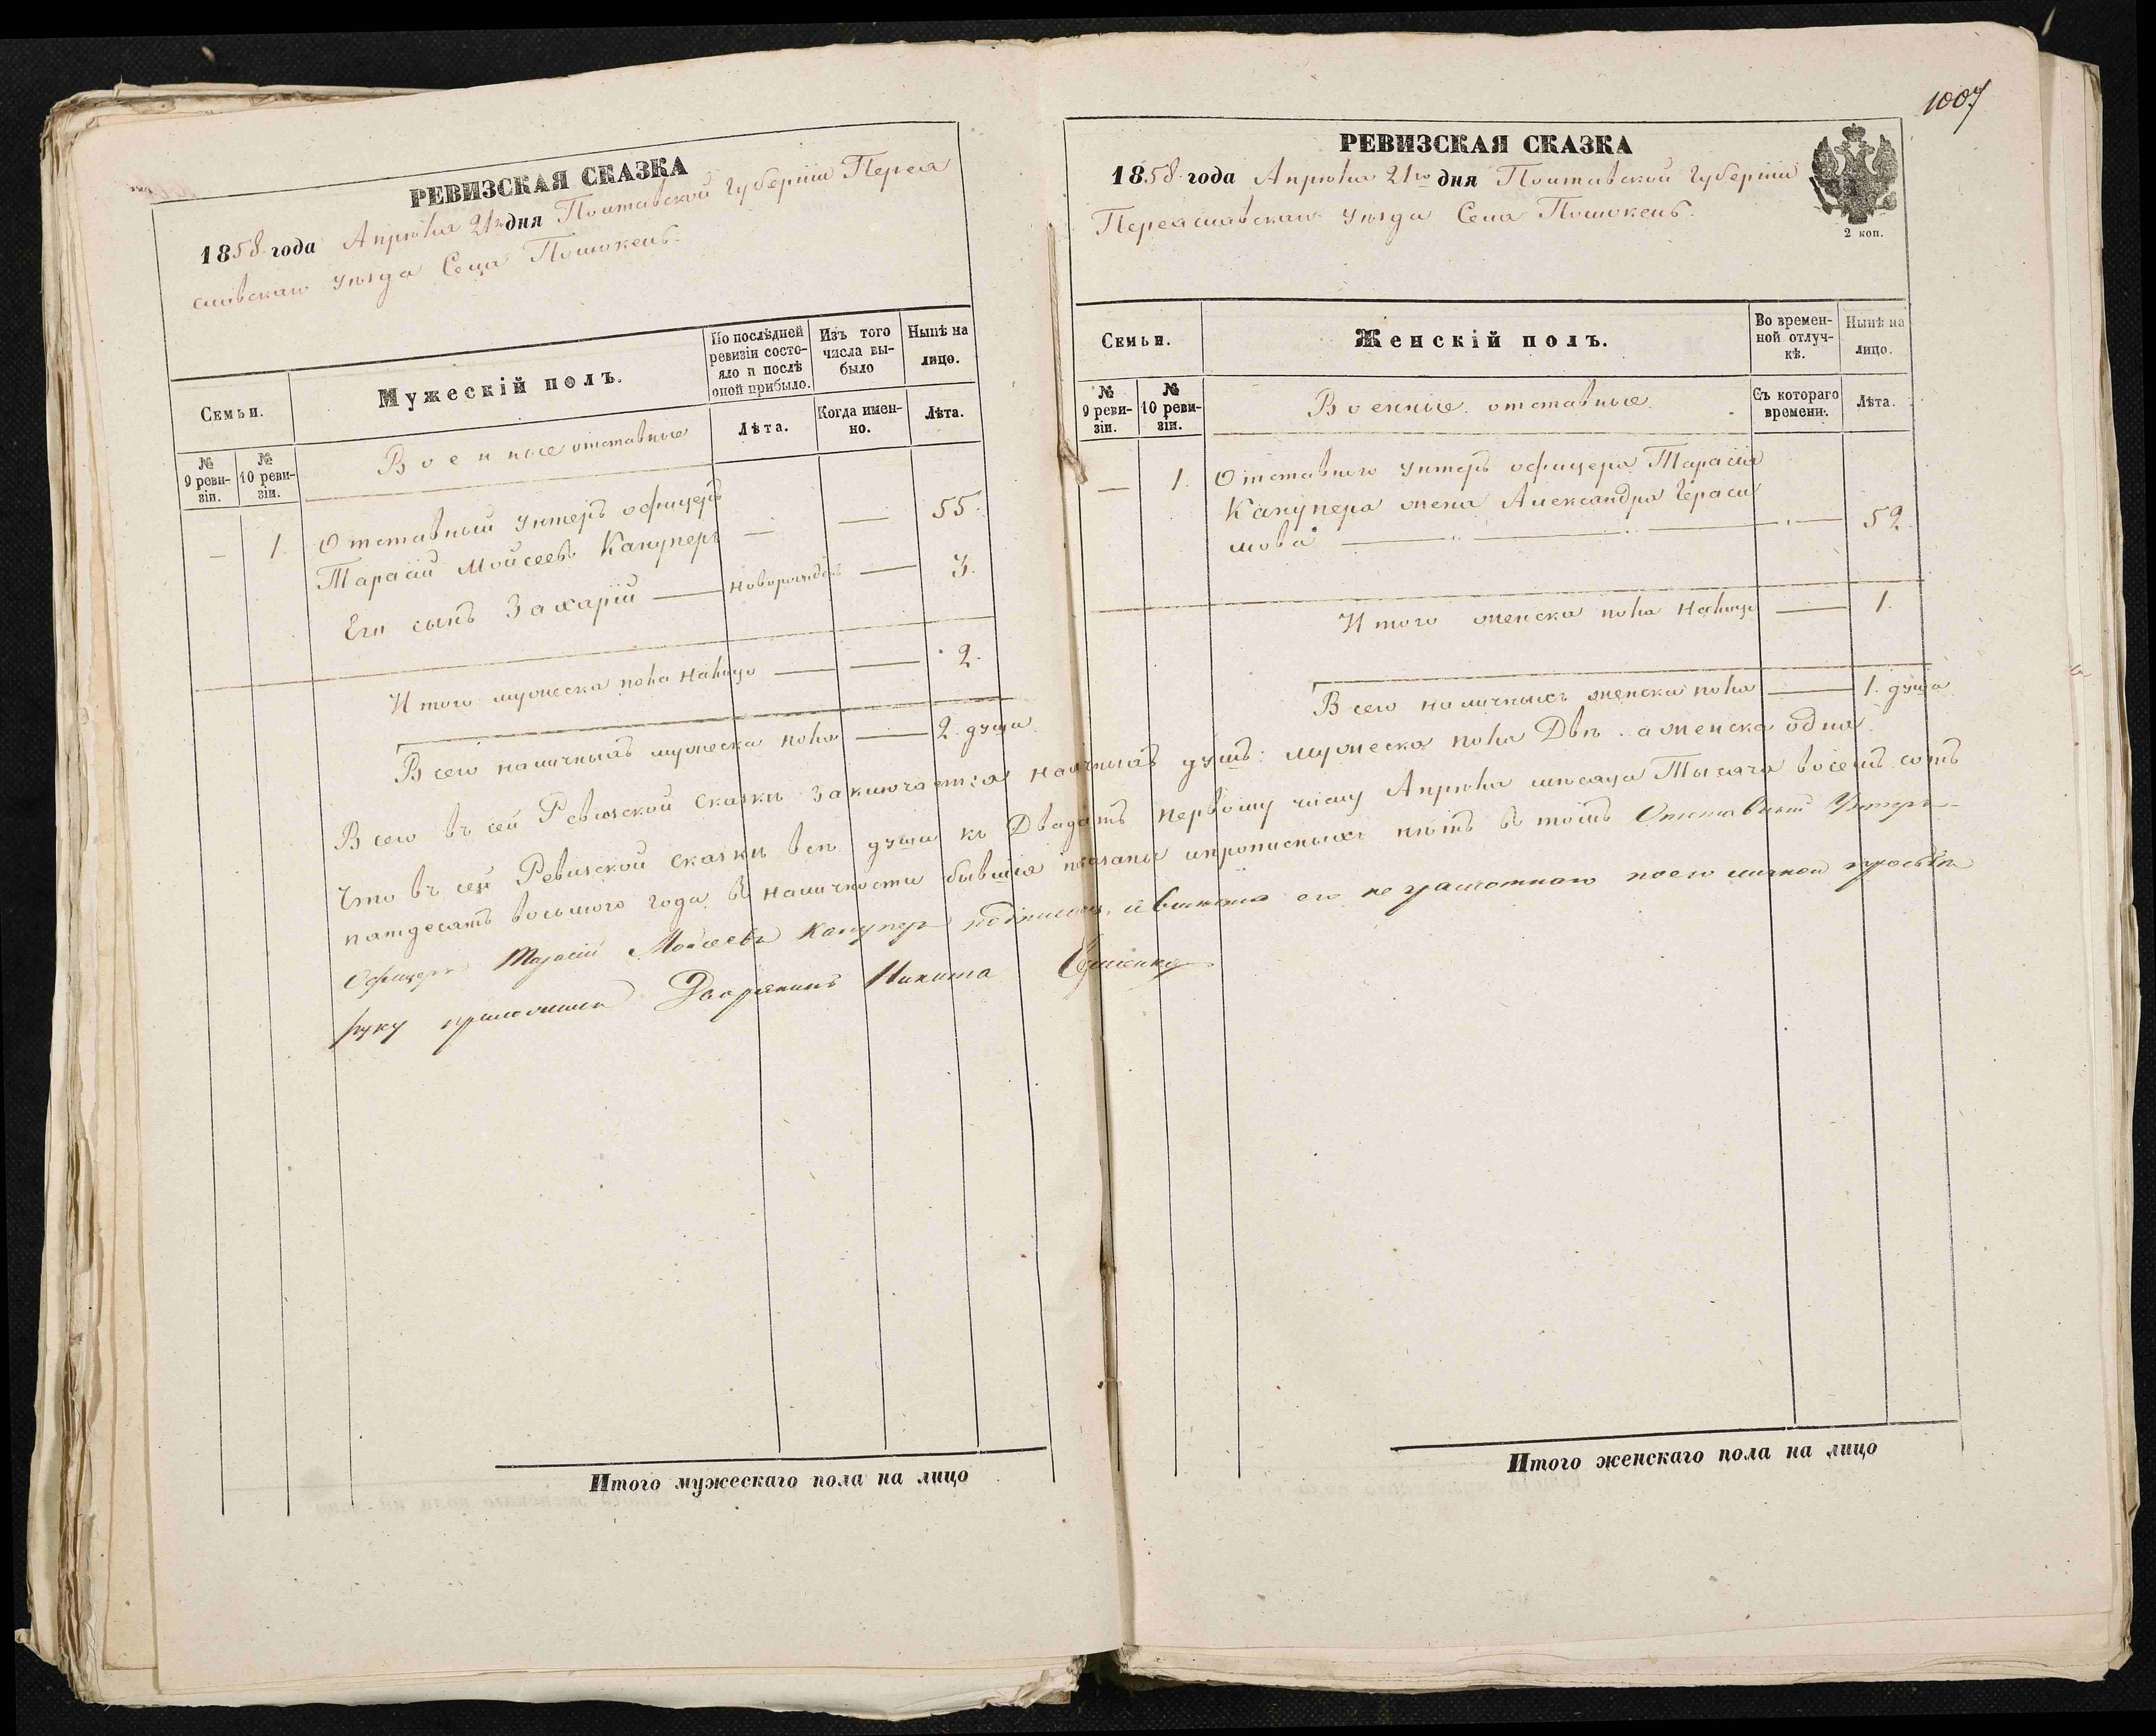 1007
РЕВИЗСКАЯ СКАЗКА
1858 года Апрѣля 21го дня Полтавской Губерніи Перея
славскаго уѣзда Села Помоклей
Семьи.
Мужескій полъ.
По послѣдней ревизіи состояло и послѣ оной прибыло.
Изъ того числа выбыло
Нынѣ на лицо.
№ 9 ревизіи.
№ 10 ревизіи.
Военные отставные
Лѣта.
Когда именно.
Лѣта.
— 1. Отставный унтеръ офицеръ
Тарасій Мойсеевъ Канупер — — 55.
Его сынъ Захарій — новорожден — 3.
Итого мужеска пола налицо — — 2.
Всего наличныхъ мужеска пола — 2. души
РЕВИЗСКАЯ СКАЗКА
1858 года Апрѣля 21го дня Полтавской Губерніи
Переяславскаго уѣзда Села Помоклей
2 коп.
Семьи.
Женскій полъ.
Во временной отлучкѣ.
Нынѣ на лицо.
№ 9 ревизіи.
№ 10 ревизіи.
Военные отставные.
Съ котораго времени.
Лѣта.
— 1. Отставного унтеръ офицера Тарасія
Канупера жена Александра Гераси
мова — — 52
Итого женска пола налицо — 1.
Всего наличныхъ женска пола — 1. душа
Всего въ сей Ревизской сказкѣ заключается наличныхъ душъ: мужеска пола Двѣ а женска одна
Что въ сей Ревизской сказкѣ всѣ души къ Двадцать первому числу Апрѣля мѣсяца Тысяча восемь сотъ
пятдесятъ восьмого года въ наличности бывшія показаны ипрописныхъ нѣтъ въ томъ Отставный Унтеръ-
Офицеръ Тарасій Мойсеевъ Канупер не грамотнаго поего личной просьбѣ
руку приложилъ Дворянинъ Никита
Итого мужескаго пола на лицо
Итого женскаго пола на лицо